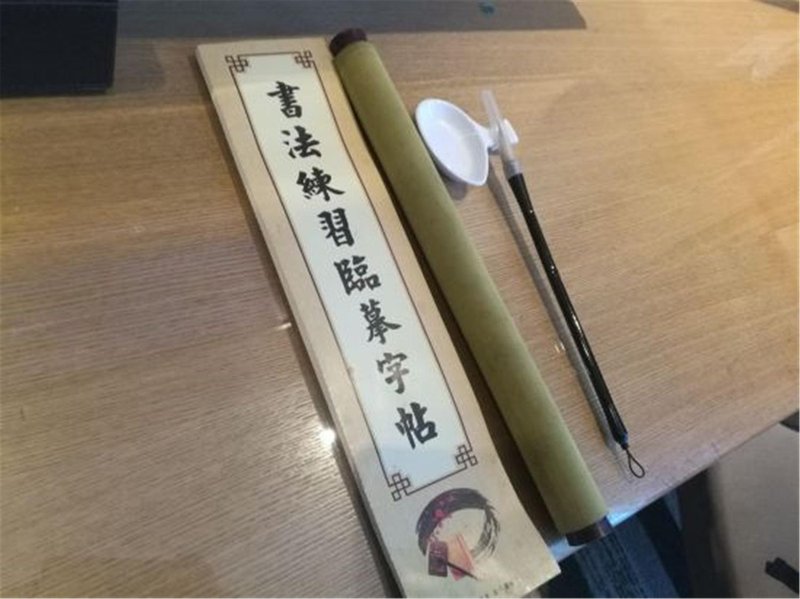 書法練習臨摹字帖